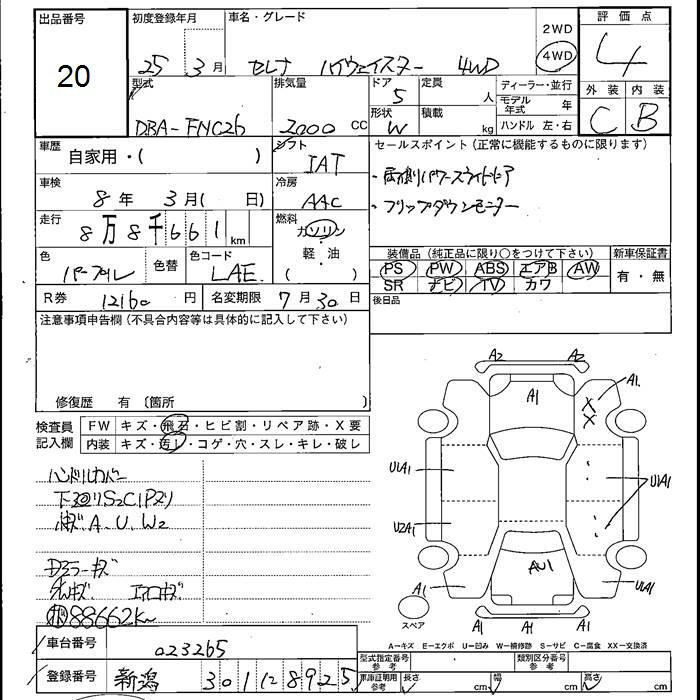 出品番号
20
初度登録年月
25 3月
車名・グレード
セレナ ハイウェイスター 4WD
2WD
4WD
評価点
4
外装 内装
C B
型式
DBA-FNC26
排気量
2000 CC
ドア
5
形状
W
定員
人
積載
kg
ディーラー・並行
モデル年式 年
ハンドル 左・右
車歴
自家用・( )
シフト
IAT
セールスポイント (正常に機能するものに限ります)
・両側パワースライドドア
・フリップダウンモニター
車検
8年 3月( 日)
冷房
AAC
走行
8万8千661km
燃料
ガソリン
・
軽・油
( )
色
パープル
色替
色コード
LAE
装備品 (純正品に限り○をつけて下さい)
PS PW ABS エアB AW
SR ナビ TV カワ
新車保証書
有・無
R券 12160円
名変期限 7月30日
後日品
注意事項申告欄 (不具合内容等は具体的に記入して下さい)
修復歴 有 〔箇所 〕
検査員記入欄
FW キズ・飛石・ヒビ割・リペア跡・X要
内装 キズ・汚レ・コゲ・穴・スレ・キレ・破レ
ハンドルカバー
下廻りS2C1Pズリ
A.U.W2
Dミラーキズ
エアロキズ
88662km
A2 A2
A1 A1
XX
U1A1 U1A1
U2A1
AU1
A1 U1A1
A1 A1 A1
スペア
A-キズ E-エクボ U-凹み W-補修跡 S-サビ C-腐食 XX-交換済
車台番号 023265
登録番号 新潟 301 ほ 8925
型式指定番号 参考
類別区分番号 参考
車庫証明用 参考
長さ cm 幅 cm 高さ cm